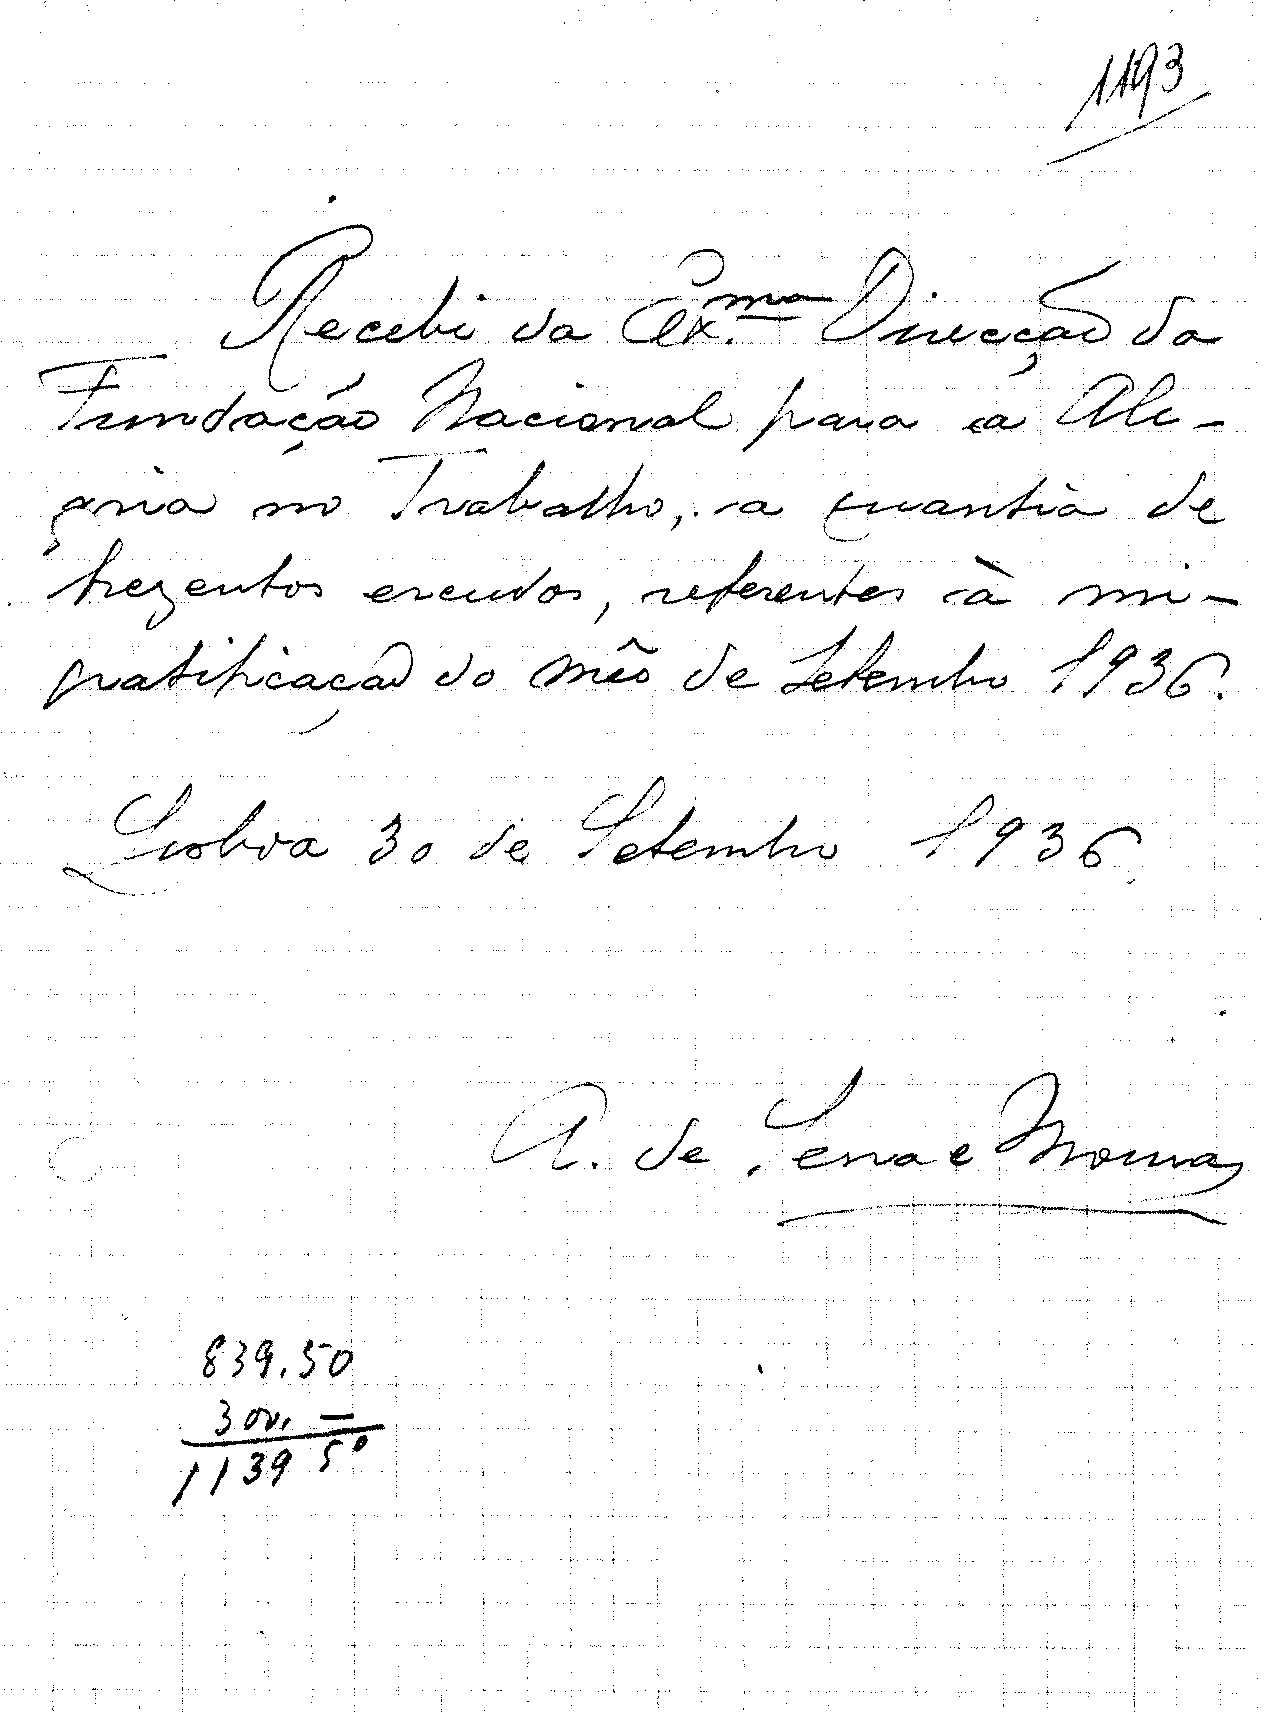 1193
Recebi da Ex.ma Direcção da
Fundação Nacional para a Ale-
gria no Trabalho, a quantia de
trezentos escudos, referentes à mi-
gratificação do mês de Setembro 1936.
Lisboa 30 de Setembro 1936.
A. de Sena e Moura
839.50
300. —
1139 50